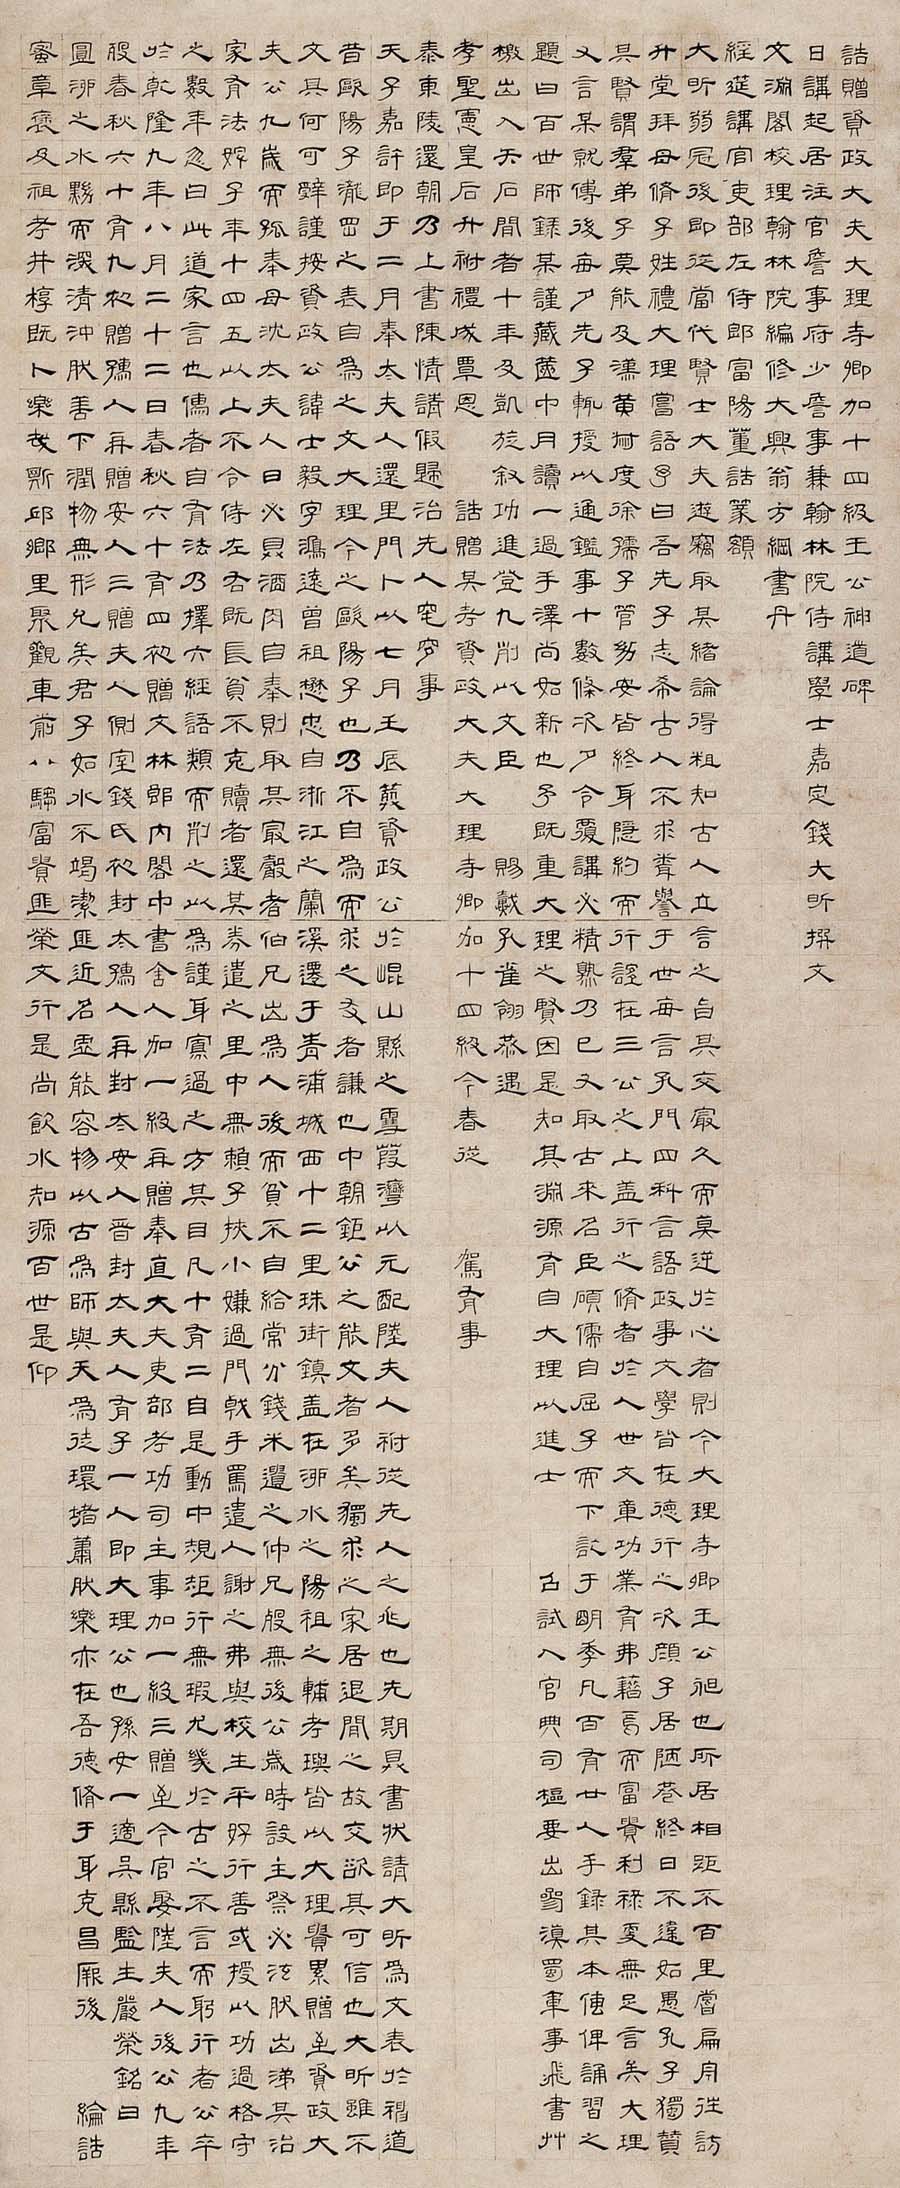 誥贈資政大夫大理寺卿加十四級王公神道碑
日講起居注官詹事府少詹事兼翰林院侍講學士嘉定錢大昕撰文
文淵閣校理翰林院編修大興翁方綱書丹
經筵講官吏部左侍郎富陽董誥篆額
大昕弱冠後即從當代賢士大夫遊竊取其緒論得粗知古人立言之旨其交最久而莫逆於心者則今大理寺卿王公昶也所居相距不百里嘗扁舟往訪
升堂拜母脩子姓禮大理嘗語予曰吾先子志希古人不求聲譽于世每言孔門四科言語政事文學皆在德行之次顏子居陋巷終日不違如愚孔子獨賛
其賢謂羣弟子莫能及漢黃叔度徐孺子管幼安皆終身隱約而行誼在三公之上盖行之脩者於人世文章功業有弗藉焉而富貴利祿更無足言矣大理
又言某就傅後每夕先子輒授以通鑑事十數條次夕令覆講必精熟乃已又取古來名臣碩儒自屈子而下訖于明季凡百有廿人手錄其本傳俾誦習之
題曰百世師錄某謹藏篋中月讀一過手澤尚如新也予既重大理之賢因是知其淵源有自大理以進士 召試入官典司樞要出㕕滇蜀軍事飛書艸
檄出入矢石間者十年及凱旋敘功進登九列以文臣 賜戴孔雀翎恭遇
孝聖憲皇后升祔禮成覃恩 誥贈其考資政大夫大理寺卿加十四級今春從 駕有事
泰東陵還朝乃上書陳情請假歸治先人窀穸事
天子嘉許即于二月奉太夫人還里門卜以七月壬辰葬資政公於崐山縣之雪葭灣以元配陸夫人祔從先人之兆也先期具書狀請大昕為文表於神道
昔歐陽子瀧岡之表自為之文大理今之歐陽子也乃不自為而求之友者謙也中朝鉅公之能文者多矣獨求之家居退閒之故交欲其可信也大昕雖不
文其何可辭謹按資政公諱士毅字鴻遠曾祖懋忠自浙江之蘭溪遷于青浦城西十二里珠街鎮盖在泖水之陽祖之輔考璵皆以大理貴累贈至資政大
夫公九歲而孤奉母沈太夫人日必具酒肉自奉則取其最觳者伯兄出為人後而貧不自給常分錢米遺之仲兄殷無後公歲時設主祭必泫肰出涕其治
家有法婢子年十四五以上不令侍左右既長貧不克贖者還其券遣之里中無賴子挾小嫌過門戟手罵遣人謝之弗與校生平好行善或授以功過格守
之數年忽曰此道家言也儒者自有法乃擇六經語類而列之以為謹身寡過之方其目凡十有二自是動中規矩行無瑕尤幾於古之不言而躬行者公卒
於乾隆九年八月二十二日春秋六十有四初贈文林郎內閣中書舍人加一級再贈奉直大夫吏部考功司主事加一級三贈至今官娶陸夫人後公九年
歿春秋六十有九初贈孺人再贈安人三贈夫人側室錢氏初封太孺人再封太安人晋封太夫人有子一人即大理公也孫女一適吳縣監生嚴榮銘曰
圓泖之水黟而深清沖肰善下潤物無形允矣君子如水不竭潔匪近名虛能容物以古為師與天為徒環堵蕭肰樂亦在吾德脩于身克昌厥後 綸誥
蜜章褒及祖考井椁既卜樂哉斯邱鄉里聚觀車前八騶富貴匪榮文行是尚飲水知源百世是仰